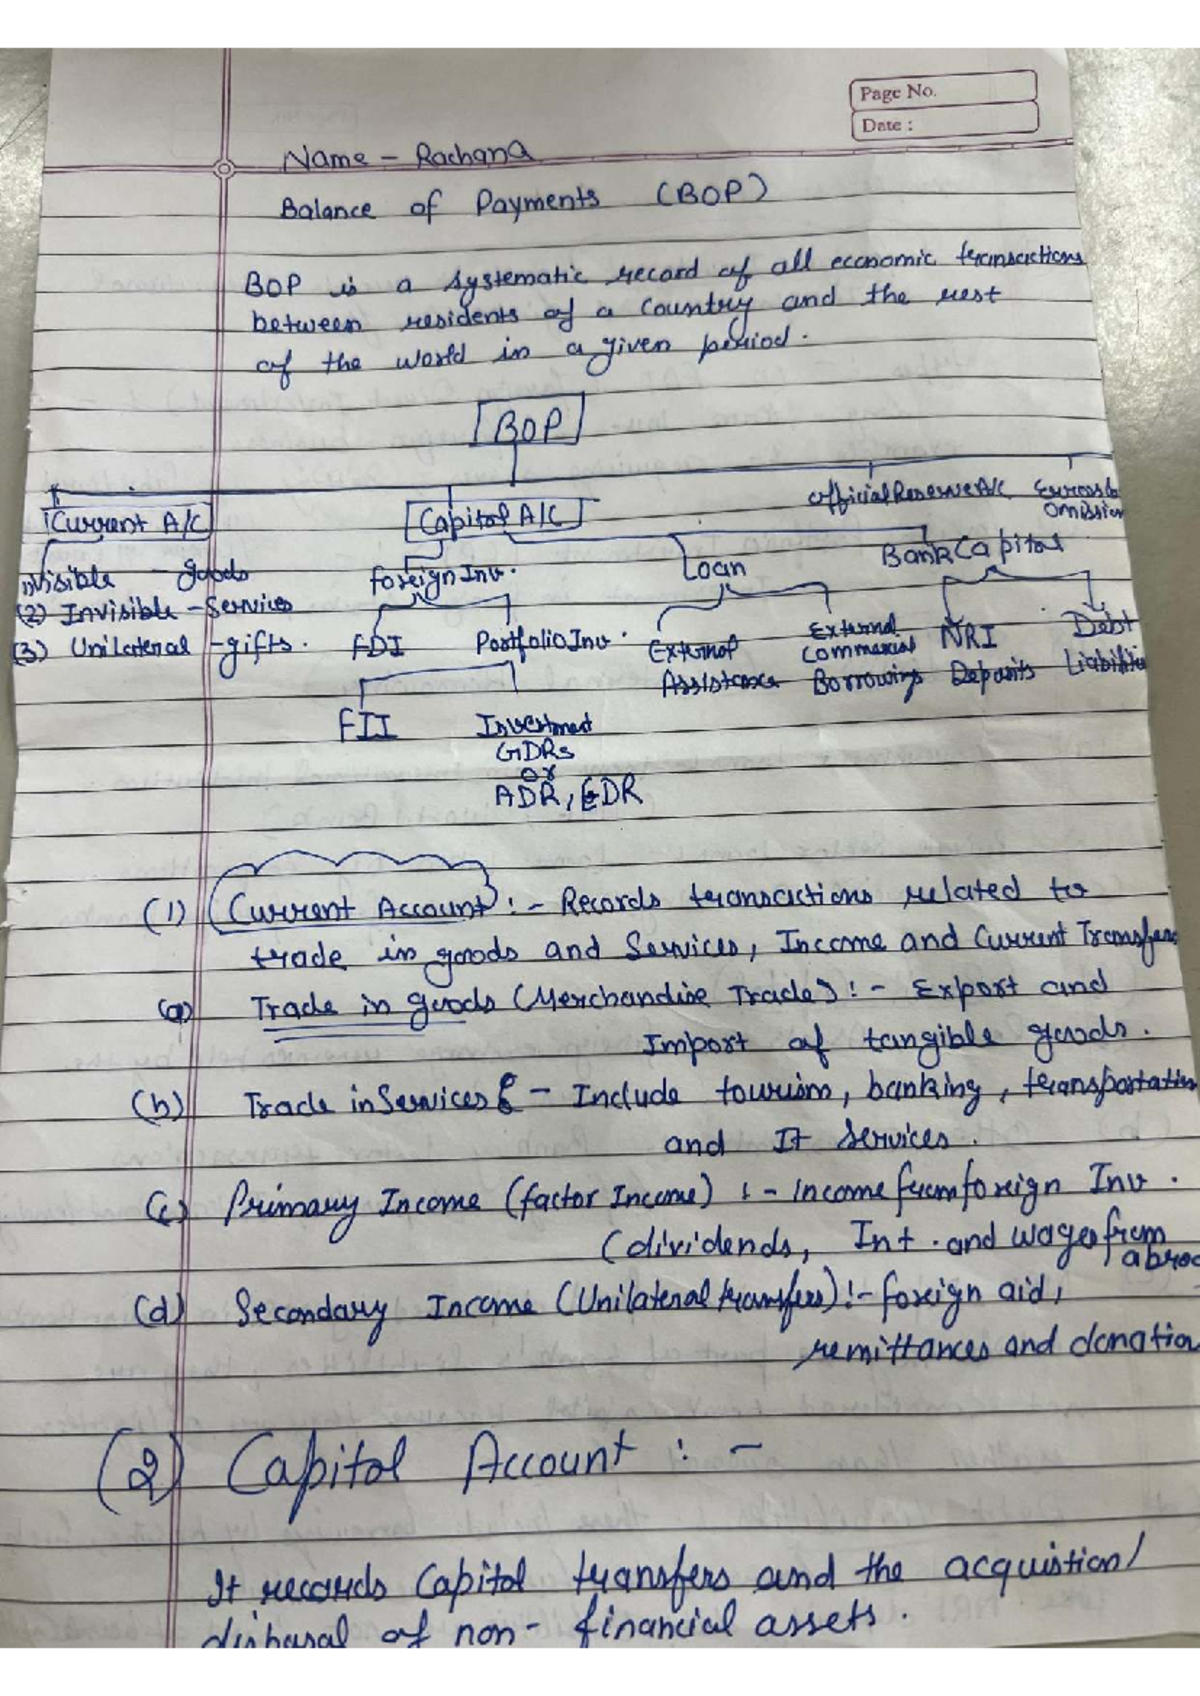 Page No.
Date :
Name - Rachana
Balance of Payments (BOP)
BOP is a systematic record of all economic transactions
between residents of a country and the rest
of the world in a given period.
BOP
Current A/C Capital A/C Official Reserve A/C Errors & Omission
(1) Visible - goods Foreign Inv. Loan Bank Capital
(2) Invisible - Services
(3) Unilateral - gifts. FDI Portfolio Inv. External Assistance External Commercial Borrowing NRI Deposits Debt Liabilities
FII Investment
GDRs
or
ADR, EDR
(1) Current Account :- Records transactions related to
trade in goods and Services, Income and Current Transfers
(a) Trade in goods (Merchandise Trade) :- Export and
Import of tangible goods.
(b) Trade in Services :- Include tourism, banking, transportation
and IT services.
(c) Primary Income (factor Income) :- income from foreign Inv.
(dividends, Int. and wages from
abroad
(d) Secondary Income (Unilateral transfers) :- foreign aid,
remittances and donation
(2) Capital Account :-
It records Capital transfers and the acquistion/
disposal of non-financial assets.